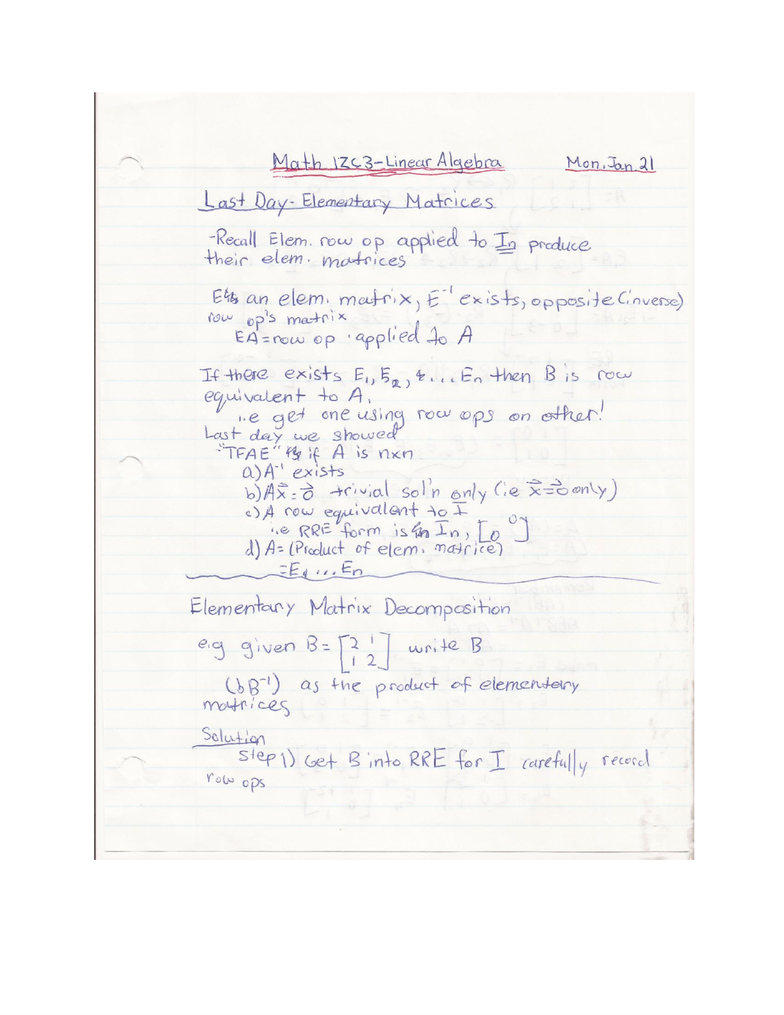 Math 1ZC3-Linear Algebra Mon. Jan. 21
Last Day- Elementary Matrices
-Recall Elem. row op applied to In produce
their elem. matrices
E is an elem. matrix, E⁻¹ exists, opposite (inverse)
row op's matrix
EA = row op applied to A
If there exists E₁, E₂, ... En then B is row
equivalent to A.
i.e get one using row ops on other!
Last day we showed
"TFAE" if A is nxn
a) A⁻¹ exists
b) Ax⃗ = 0⃗ trivial sol'n only (i.e x⃗=0⃗ only)
c) A row equivalent to I
i.e RRE form is In,
d) A = (Product of elem. matrice)
= E₁ ... En
Elementary Matrix Decomposition
e.g given B = [2 1
1 2] write B
(b B⁻¹) as the product of elementary
matrices
Solution
step 1) Get B into RRE for I carefully record
row ops